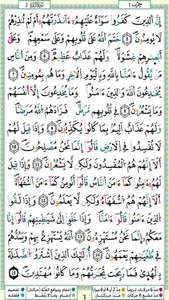 إِنَّ ٱلَّذِينَ كَفَرُوا۟ سَوَآءٌ عَلَيْهِمْ ءَأَنذَرْتَهُمْ أَمْ لَمْ تُنذِرْهُمْ
لَا يُؤْمِنُونَ ٦ خَتَمَ ٱللَّهُ عَلَىٰ قُلُوبِهِمْ وَعَلَىٰ سَمْعِهِمْ وَعَلَىٰٓ
أَبْصَـٰرِهِمْ غِشَـٰوَةٌ وَلَهُمْ عَذَابٌ عَظِيمٌ ٧ وَمِنَ ٱلنَّاسِ
مَن يَقُولُ ءَامَنَّا بِٱللَّهِ وَبِٱلْيَوْمِ ٱلْـَٔاخِرِ وَمَا هُم بِمُؤْمِنِينَ ٨
يُخَـٰدِعُونَ ٱللَّهَ وَٱلَّذِينَ ءَامَنُوا۟ وَمَا يَخْدَعُونَ إِلَّآ أَنفُسَهُمْ
وَمَا يَشْعُرُونَ ٩ فِى قُلُوبِهِم مَّرَضٌ فَزَادَهُمُ ٱللَّهُ مَرَضًا
وَلَهُمْ عَذَابٌ أَلِيمٌۢ بِمَا كَانُوا۟ يَكْذِبُونَ ١٠ وَإِذَا قِيلَ لَهُمْ
لَا تُفْسِدُوا۟ فِى ٱلْأَرْضِ قَالُوٓا۟ إِنَّمَا نَحْنُ مُصْلِحُونَ ١١
أَلَآ إِنَّهُمْ هُمُ ٱلْمُفْسِدُونَ وَلَـٰكِن لَّا يَشْعُرُونَ ١٢ وَإِذَا قِيلَ
لَهُمْ ءَامِنُوا۟ كَمَآ ءَامَنَ ٱلنَّاسُ قَالُوٓا۟ أَنُؤْمِنُ كَمَآ ءَامَنَ ٱلسُّفَهَآءُ
أَلَآ إِنَّهُمْ هُمُ ٱلسُّفَهَآءُ وَلَـٰكِن لَّا يَعْلَمُونَ ١٣ وَإِذَا لَقُوا۟
ٱلَّذِينَ ءَامَنُوا۟ قَالُوٓا۟ ءَامَنَّا وَإِذَا خَلَوْا۟ إِلَىٰ شَيَـٰطِينِهِمْ قَالُوٓا۟
إِنَّا مَعَكُمْ إِنَّمَا نَحْنُ مُسْتَهْزِءُونَ ١٤ ٱللَّهُ يَسْتَهْزِئُ بِهِمْ وَيَمُدُّهُمْ
فِى طُغْيَـٰنِهِمْ يَعْمَهُونَ ١٥ أُو۟لَـٰٓئِكَ ٱلَّذِينَ ٱشْتَرَوُا۟ ٱلضَّلَـٰلَةَ
بِٱلْهُدَىٰ فَمَا رَبِحَت تِّجَـٰرَتُهُمْ وَمَا كَانُوا۟ مُهْتَدِينَ ١٦
3